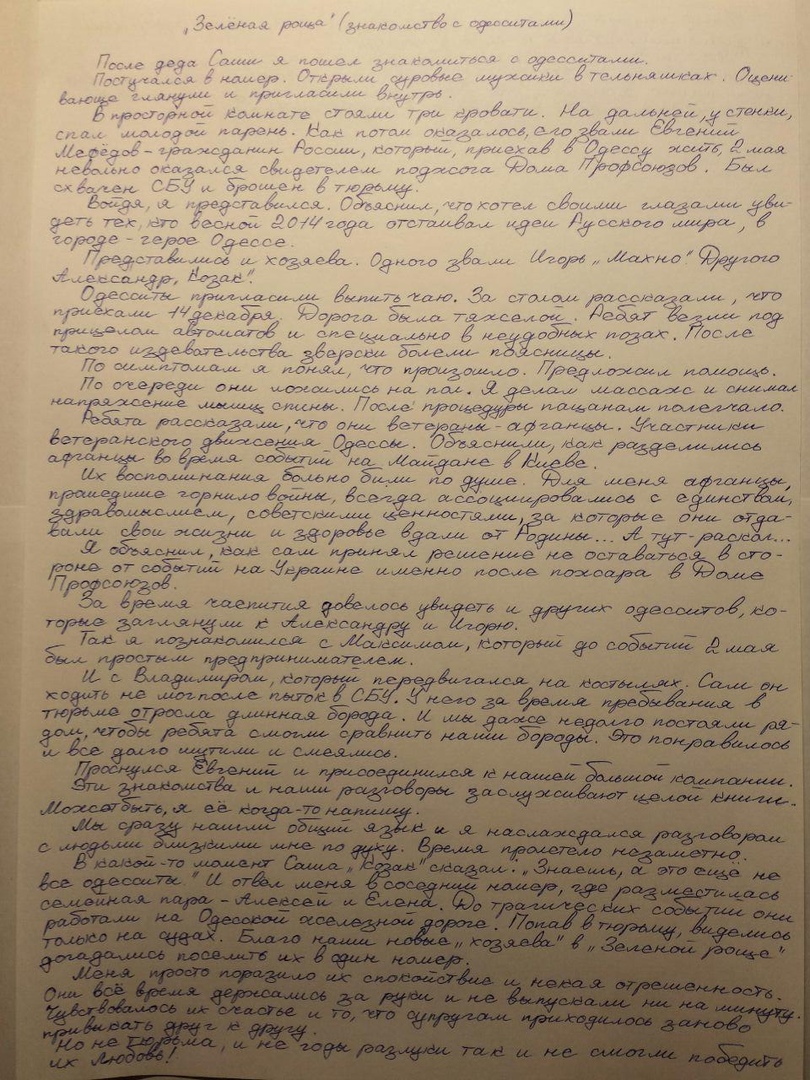 „Зелёная роща" (знакомство с одесситами)
После деда Саши я пошел знакомиться с одесситами.
Постучался в номер. Открыли суровые мужики в тельняшках. Оцени-
вающе глянули и пригласили внутрь.
В просторной комнате стояли три кровати. На дальней, у стенки,
спал молодой парень. Как потом оказалось, его звали Евгений
Мефёдов – гражданин России, который, приехав в Одессу жить, 2 мая
невольно оказался свидетелем поджога Дома Профсоюзов. Был
схвачен СБУ и брошен в тюрьму.
Войдя, я представился. Объяснил, что хотел своими глазами уви-
деть тех, кто весной 2014 года отстаивал идеи Русского мира, в
городе-герое Одессе.
Представились и хозяева. Одного звали Игорь „Махно". Другого
Александр „Козак".
Одесситы пригласили выпить чаю. За столом рассказали, что
приехали 14 декабря. Дорога была тяжелой. Ребят везли под
прицелом автоматов и специально в неудобных позах. После
такого издевательства зверски болели поясницы.
По симптомам я понял, что произошло. Предложил помощь.
По очереди они ложились на пол. Я делал массаж и снимал
напряжение мышц спины. После процедуры пацанам полегчало.
Ребята рассказали, что они ветераны-афганцы. Участники
ветеранского движения Одессы. Объяснили, как разделились
афганцы во время событий на Майдане в Киеве.
Их воспоминания больно били по душе. Для меня афганцы,
прошедшие горнило войны, всегда ассоциировались с единством,
здравомыслием, советскими ценностями, за которые они отда-
вали свои жизни и здоровье вдали от Родины... А тут – раскол...
Я объяснил, как сам принял решение не оставаться в сто-
роне от событий на Украине именно после пожара в Доме
Профсоюзов.
За время чаепития довелось увидеть и других одесситов, ко-
торые заглянули к Александру и Игорю.
Так я познакомился с Максимом, который до событий 2 мая
был простым предпринимателем.
И с Владимиром, который передвигался на костылях. Сам он
ходить не мог после пыток в СБУ. У него за время пребывания в
тюрьме отросла длинная борода. И мы даже недолго постояли ря-
дом, чтобы ребята смогли сравнить наши бороды. Это понравилось
и все долго шутили и смеялись.
Проснулся Евгений и присоединился к нашей большой компании.
Эти знакомства и наши разговоры заслуживают целой книги.
Может быть, я её когда-то напишу.
Мы сразу нашли общий язык и я наслаждался разговором
с людьми близкими мне по духу. Время пролетело незаметно.
В какой-то момент Саша „Козак" сказал: „Знаешь, а это ещё не
все одесситы." И отвёл меня в соседний номер, где разместилась
семейная пара – Алексей и Елена. До трагических событий они
работали на Одесской железной дороге. Попав в тюрьму, виделись
только на судах. Благо наши новые „хозяева" в „Зеленой роще"
догадались поселить их в один номер.
Меня просто поразило их спокойствие и некая отрешенность.
Они всё время держались за руки и не выпускали ни на минуту.
Чувствовалось их счастье и то, что супругам приходилось заново
привыкать друг к другу.
Но не тюрьма, и не годы разлуки так и не смогли победить
их Любовь!